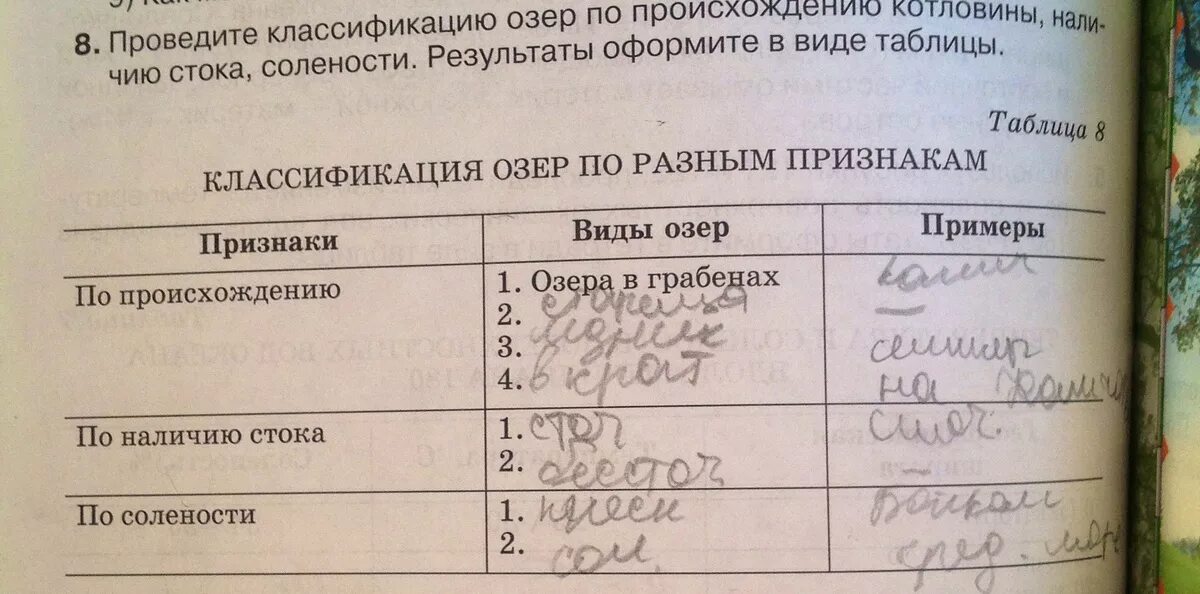 8. Проведите классификацию озер по происхождению котловины, нали-
чию стока, солености. Результаты оформите в виде таблицы.
Таблица 8
КЛАССИФИКАЦИЯ ОЗЕР ПО РАЗНЫМ ПРИЗНАКАМ
Признаки Виды озер Примеры
По происхождению 1. Озера в грабенах
2. старица —
3. ледник
4. в крат на
По наличию стока 1. сточ
2. бессточ —
По солености 1. пресн Байкал
2. сол. сред. море